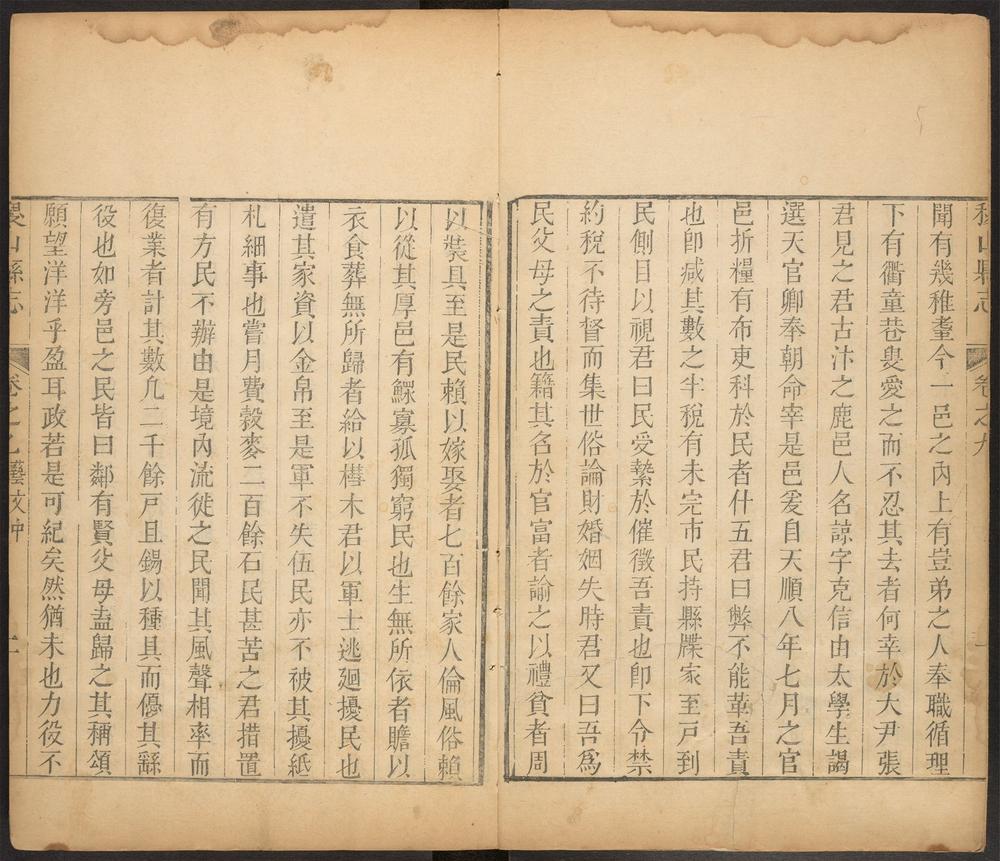 稷山縣志 卷之九
聞有幾稚耋今一邑之內上有豈弟之人奉職循理
下有衢童巷叟愛之而不忍其去者何幸於大尹張
君見之君古汴之鹿邑人名諒字克信由太學生謁
選天官卿奉朝命宰是邑爰自天順八年七月之官
邑折糧有布吏科於民者什五君曰弊不能革吾責
也卽减其數之半稅有未完市民持縣牒家至戸到
民側目以視君曰民受縶於催徵吾責也卽下令禁
約稅不待督而集世俗論財婚姻失時君又曰吾爲
民父母之責也籍其名於官富者諭之以禮貧者周
以裝具至是民賴以嫁娶者七百餘家人倫風俗賴
以從其厚邑有鰥寡孤獨窮民也生無所依者贍以
衣食葬無所歸者給以槥木君以軍士逃廻擾民也
遣其家資以金帛至是軍不失伍民亦不被其擾紙
札細事也嘗月費穀麥二百餘石民甚苦之君措置
有方民不辦由是境內流徙之民聞其風聲相率而
復業者計其數凢二千餘戸且錫以種具而優其繇
役也如旁邑之民皆曰鄰有賢父母盍歸之其稱頌
願望洋洋乎盈耳政若是可紀矣然猶未也力役不
稷山縣志 卷之 藝文中